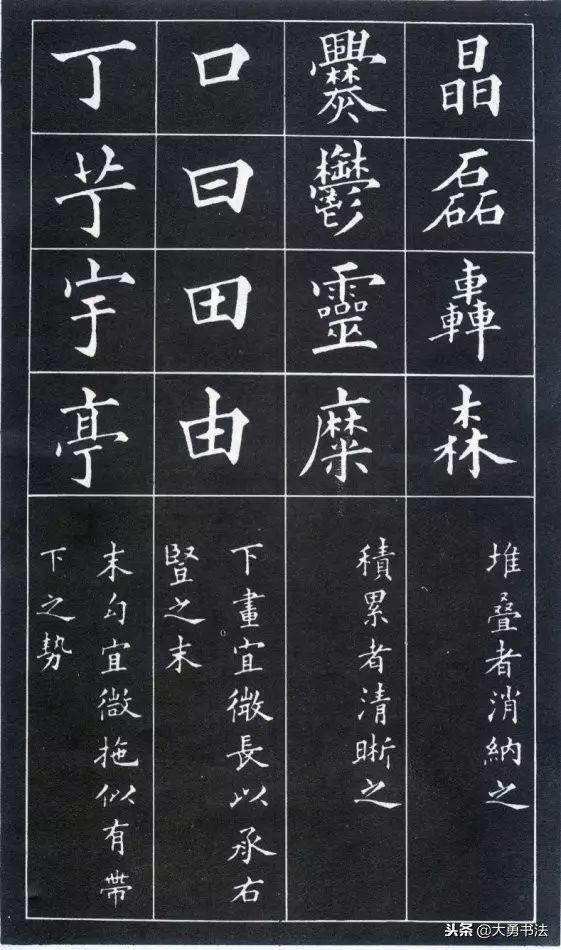 晶磊轟森
堆叠者消納之
爨鬱靈糜
積累者清晰之
口曰田由
下畫宜微長以承右
豎之末
丁艼宇亭
末勾宜微拖似有帶
下之勢
头条@大勇书法